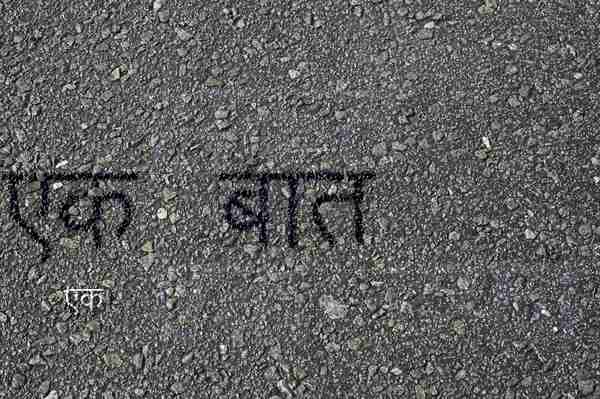 एक बात
एक